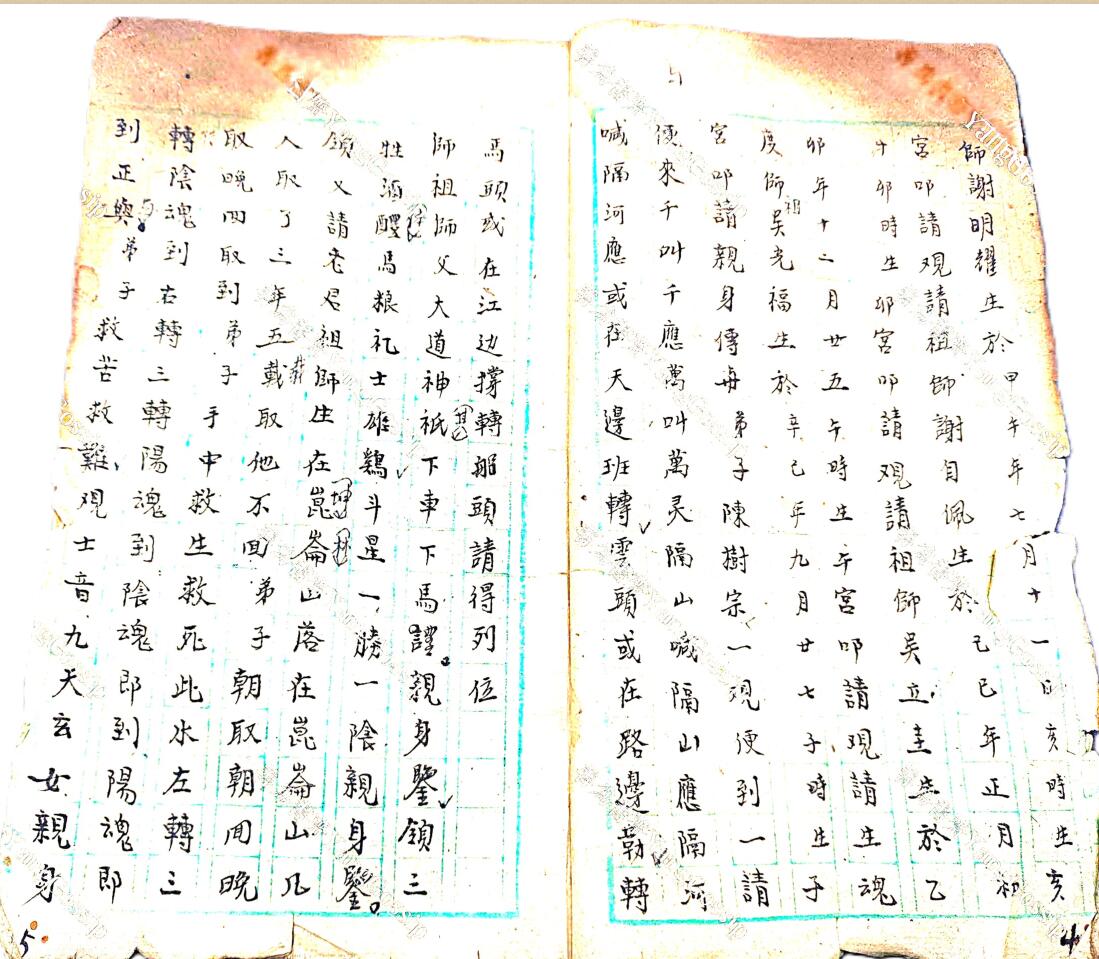 師謝明耀生於甲午年七月十一日亥時生亥
宮叩請覌請祖師謝自佩生於己巳年正月初
卯時生卯宮叩請覌請祖師吴立圭生於乙
卯年十二月廿五午時生午宮叩請覌請生魂
度師祖吴光福生於辛己年九月廿七子時生子
宮叩請親身傳毋弟子陳樹宗一覌便到一請
便來千叫千應萬叫萬灵隔山喊隔山應隔河
喊隔河應或在天邊班轉雲頭或在路邊勒轉
4
馬頭或在江边撑轉船頭請得列位
師祖師父大道神祇下車下馬親身鑒領三
牲酒醴馬粮礼士雄鷄斗星一勝一陰親身鑒
領又請老君祖師生在崑崙山落在崑崙山凡
人取了三年五載取他不囬弟子朝取朝囬晚
取晚囬取到弟子手中救生救死此水左轉三
轉陰魂到右轉三轉陽魂到陰魂即到陽魂即
到正與弟子救苦救難覌士音九天玄女親身
5